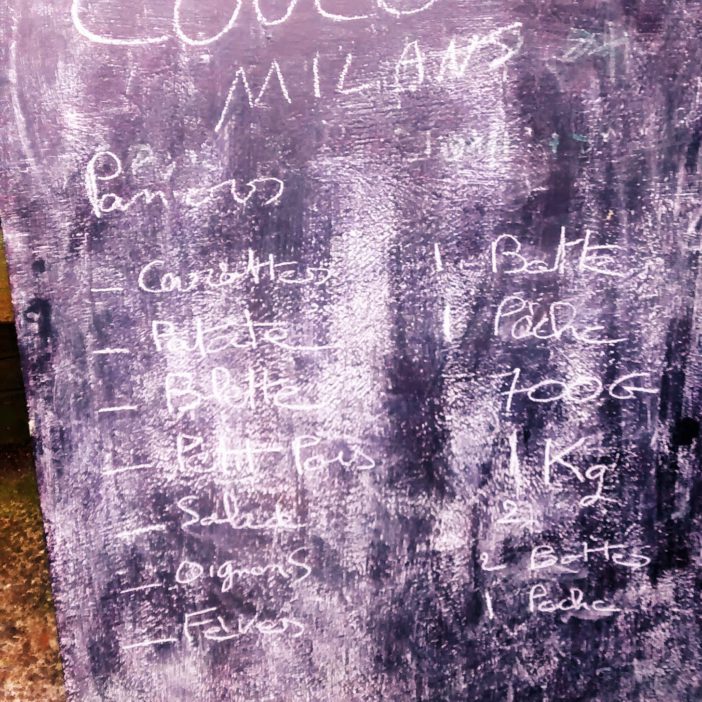 MILANS
Paniers
- Carottes 1 Botte
- Patate 1 Poche
- Blette 700G
- Petit Pois 1 Kg
- Salade 2
- Oignons 2 Bottes
- Fèves 1 Poche